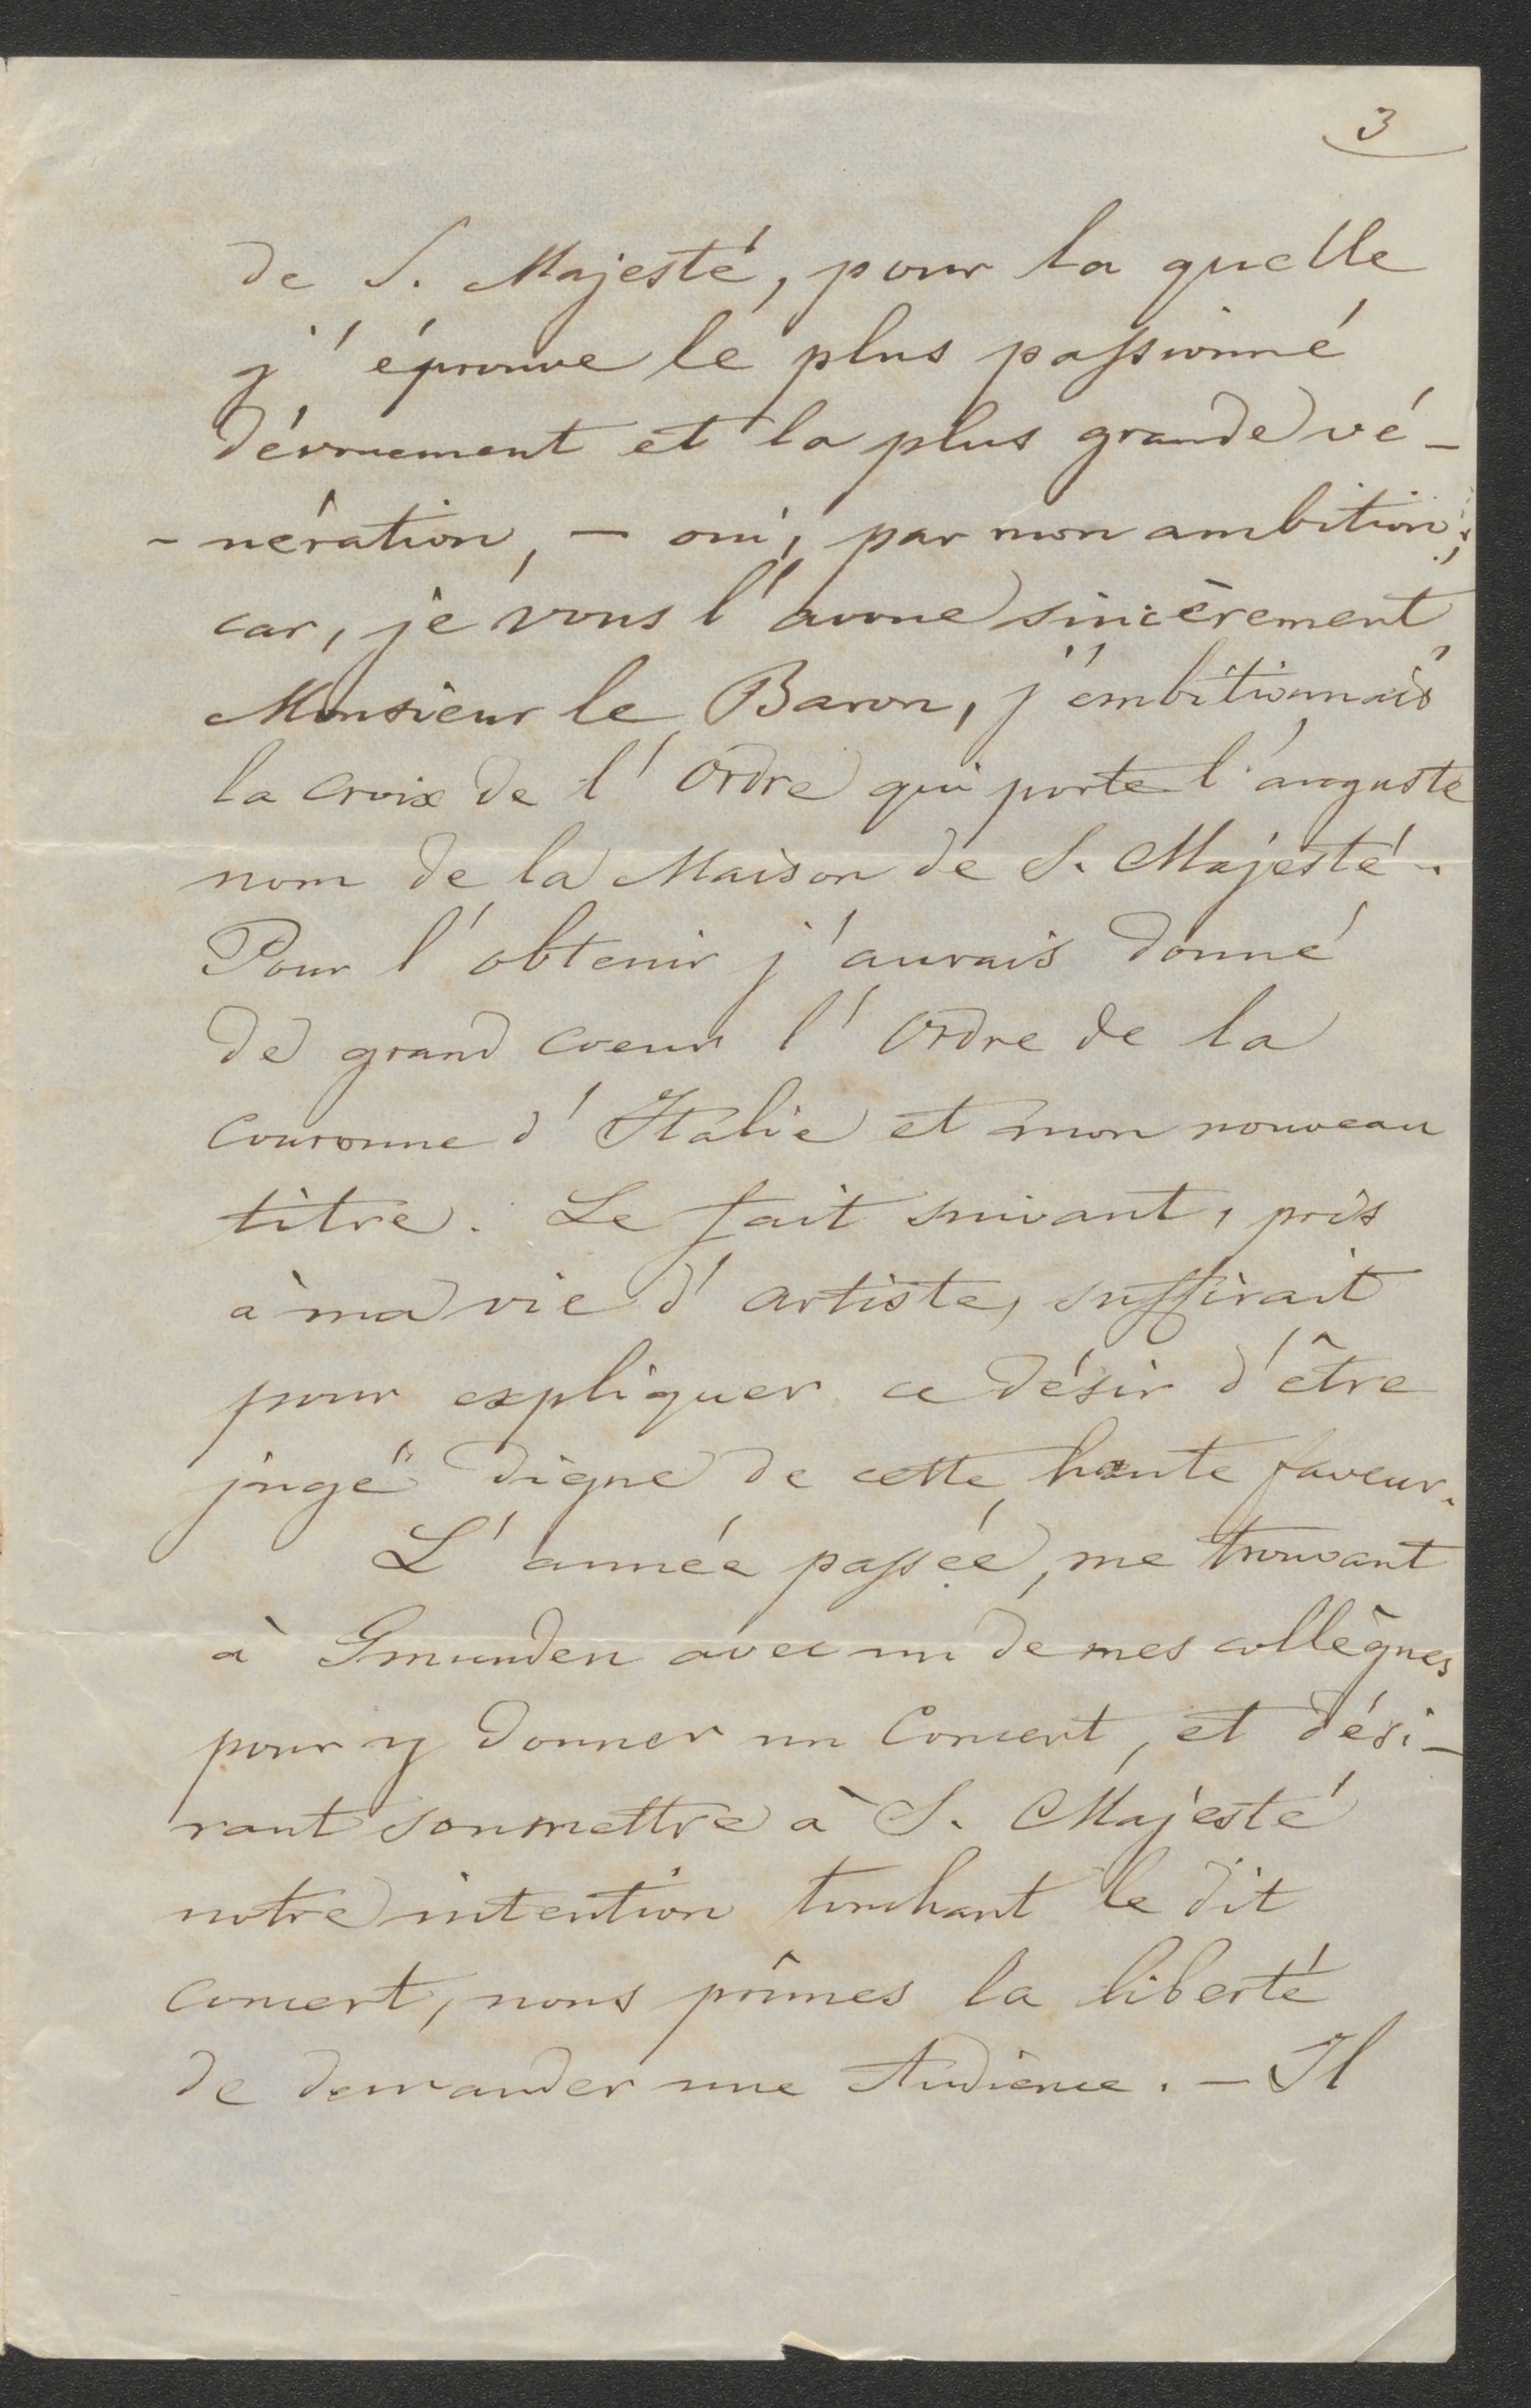 3
de S. Majesté, pour la quelle
j'éprouve le plus passionné
dévouement et la plus grande vé-
-nération, - oui, par mon ambition;
car, je vous l'avoue sincèrement,
Monsieur le Baron, j'embitionnais
la croix de l'Ordre qui porte l'auguste
nom de la Maison de S. Majesté.
Pour l'obtenir j'aurais donné
de grand coeur l'Ordre de la
Couronne d'Italie et mon nouveau
titre. Le fait suivant, pris
à ma vie d'artiste, suffirait
pour expliquer ce désir d'être
jugé digne de cette haute faveur.
L'année passée, me trouvant
à Gmunden avec un de mes collègues
pour y donner un Concert, et dési-
rant soumettre à S. Majesté
notre intention touchant le dit
concert, nous prîmes la liberté
de demander une Audience. - Il